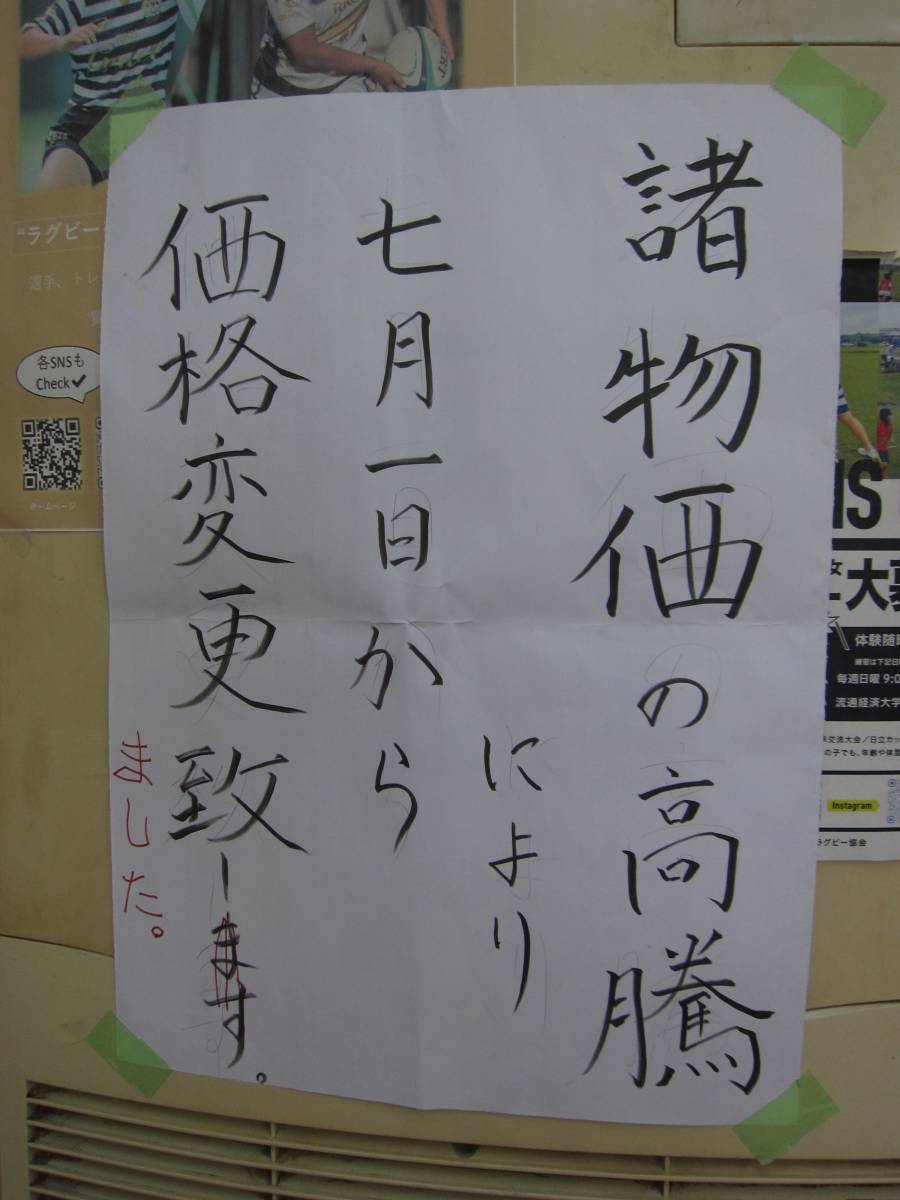 諸物価の高騰
により
七月一日から
価格変更致します。
ました。
"ラグビー
選手、トレ
各SNSも
Check✔
ホームページ
NS
大募
体験随時
毎週日曜 9:0
流通経済大学
交流大会／日立カッ
の子でも、年齢や体
Instagram
ラグビー協会